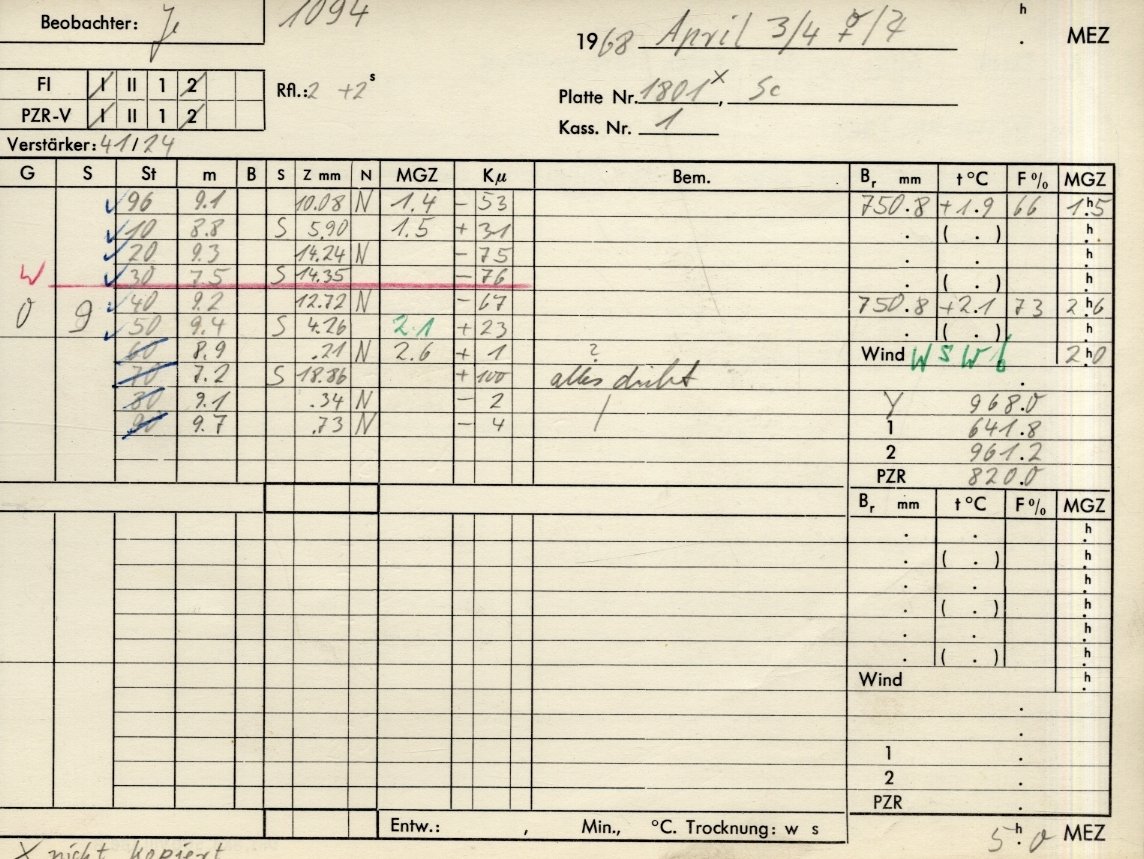 Beobachter: Je 1094 h
1968 April 3/4 ☿/♃ . MEZ
FI I II 1 2 Rfl.: 2 +2s
PZR-V I II 1 2 Platte Nr. 1801x, Sc
Kass. Nr. 1
Verstärker: 41/24
G S St m B S Z mm N MGZ Kµ Bem. Br mm t °C F % MGZ
96 9.1 10.08 N 1.4 - 53 750.8 +1.9 66 1h.5
10 8.8 S 5.90 1.5 + 31 . ( . ) h.
20 9.3 14.24 N - 75 . . h.
W 30 7.5 S 14.35 - 76 . ( . ) h.
0 9 40 9.2 12.72 N - 67 750.8 +2.1 73 2h.6
50 9.4 S 4.26 2.1 + 23 . ( . ) h.
60 8.9 .21 N 2.6 + 1 ? Wind WSW 6 2h.0
70 7.2 S 18.86 + 100 alles dicht .
80 9.1 .34 N - 2 / Y 968.0
90 9.7 .73 N - 4 1 641.8
2 961.2
PZR 820.0
Br mm t °C F % MGZ
. . h.
. ( . ) h.
. . h.
. ( . ) h.
. . h.
. ( . ) h.
Wind h.
.
.
1 .
2 .
PZR .
Entw.: , Min., °C. Trocknung: w s 5h.0 MEZ
X nicht kopiert